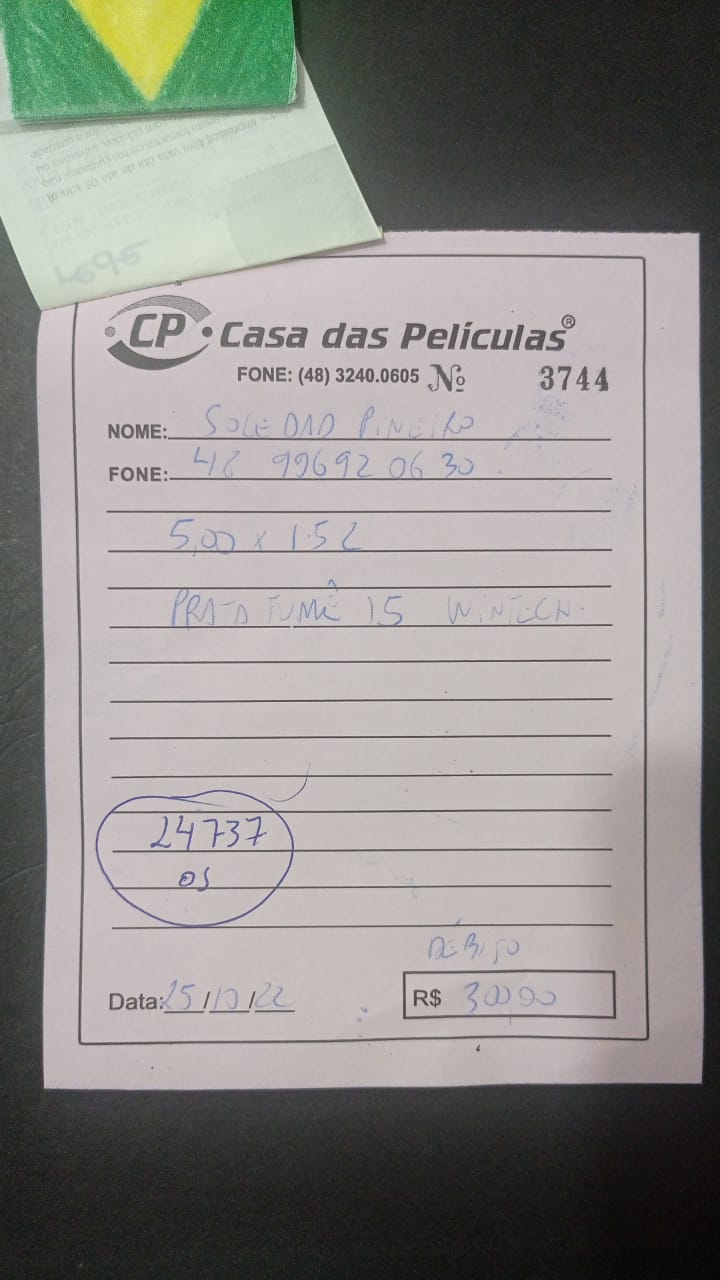 rede
CP Casa das Películas®
FONE: (48) 3240.0605 Nº 3744
NOME: SOLEDAD PINEIRO
FONE: 48 996920630
5,00 x 1.52
PRATA FUMÊ 15 WINTECH.
24737
OS
DÉBITO
Data: 25/10/22 R$ 300,00